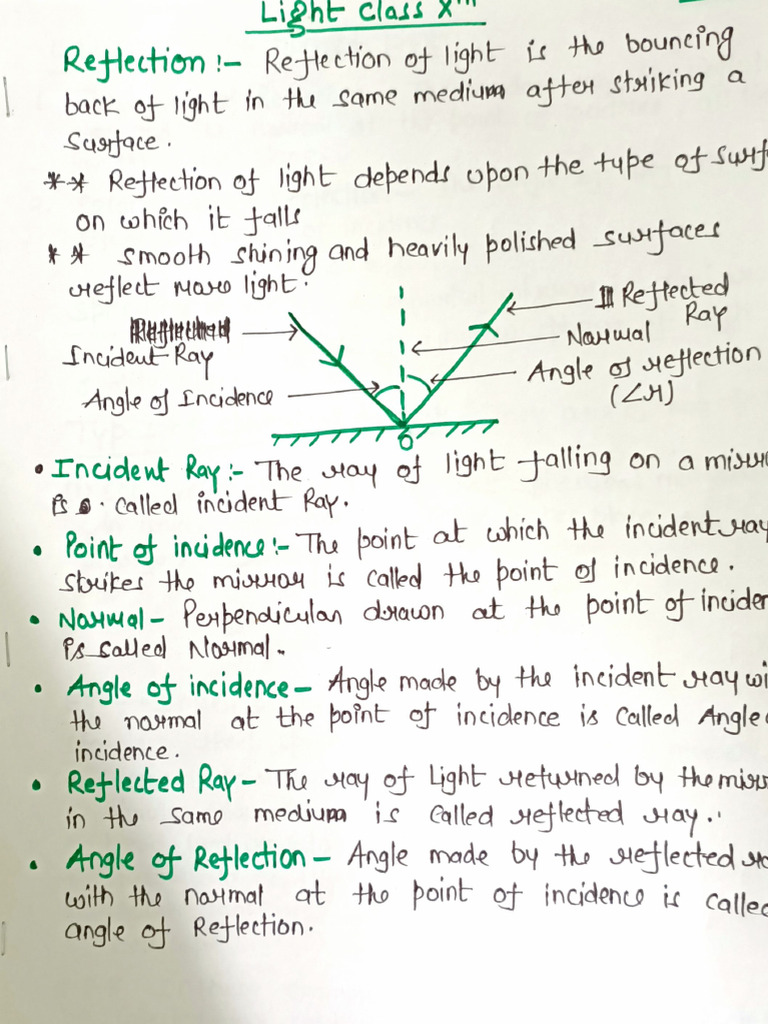 Light Class Xth
Reflection :- Reflection of light is the bouncing
back of light in the same medium after striking a
surface.
** Reflection of light depends upon the type of surf
on which it falls
** smooth shining and heavily polished surfaces
reflect more light.
Reflected Ray
Incident Ray
Normal
Angle of Incidence
Angle of reflection
(∠r)
O
• Incident Ray :- The ray of light falling on a mirr
is called incident Ray.
• Point of incidence :- The point at which the incident ray
strikes the mirror is called the point of incidence.
• Normal - Perpendicular drawn at the point of inciden
is called Normal.
• Angle of incidence - Angle made by the incident ray wi
the normal at the point of incidence is called Angle
incidence.
• Reflected Ray - The ray of Light returned by the mirr
in the same medium is called reflected ray.
• Angle of Reflection - Angle made by the reflected ra
with the normal at the point of incidence is called
angle of Reflection.